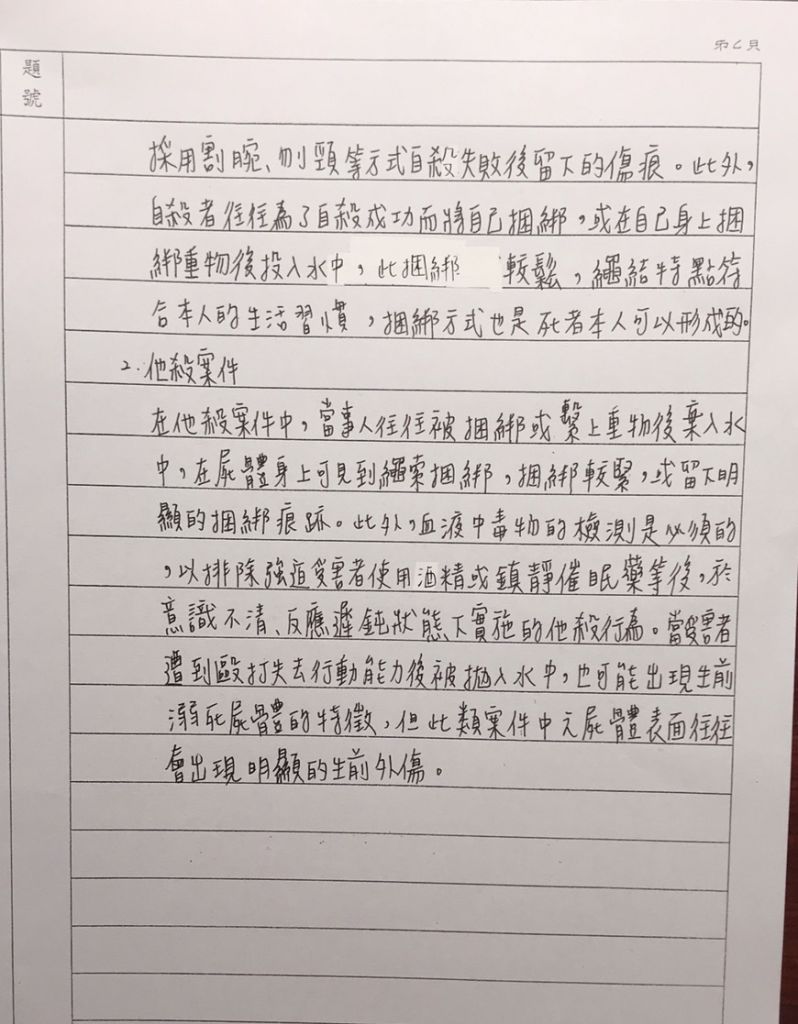 第乙頁
題
號
採用割腕、刎頸等方式自殺失敗後留下的傷痕。此外,
自殺者往往為了自殺成功而將自己捆綁,或在自己身上捆
綁重物後投入水中,此捆綁 較鬆,繩結特點符
合本人的生活習慣,捆綁方式也是死者本人可以形成的。
2. 他殺案件
在他殺案件中,當事人往往被捆綁或繫上重物後棄入水
中,在屍體身上可見到繩索捆綁,捆綁較緊,或留下明
顯的捆綁痕跡。此外,血液中毒物的檢測是必須的
,以排除強迫受害者使用酒精或鎮靜催眠藥等後,於
意識不清、反應遲鈍狀態下實施的他殺行為。當受害者
遭到毆打失去行動能力後被拋入水中,也可能出現生前
溺死屍體的特徵,但此類案件中之屍體表面往往
會出現明顯的生前外傷。